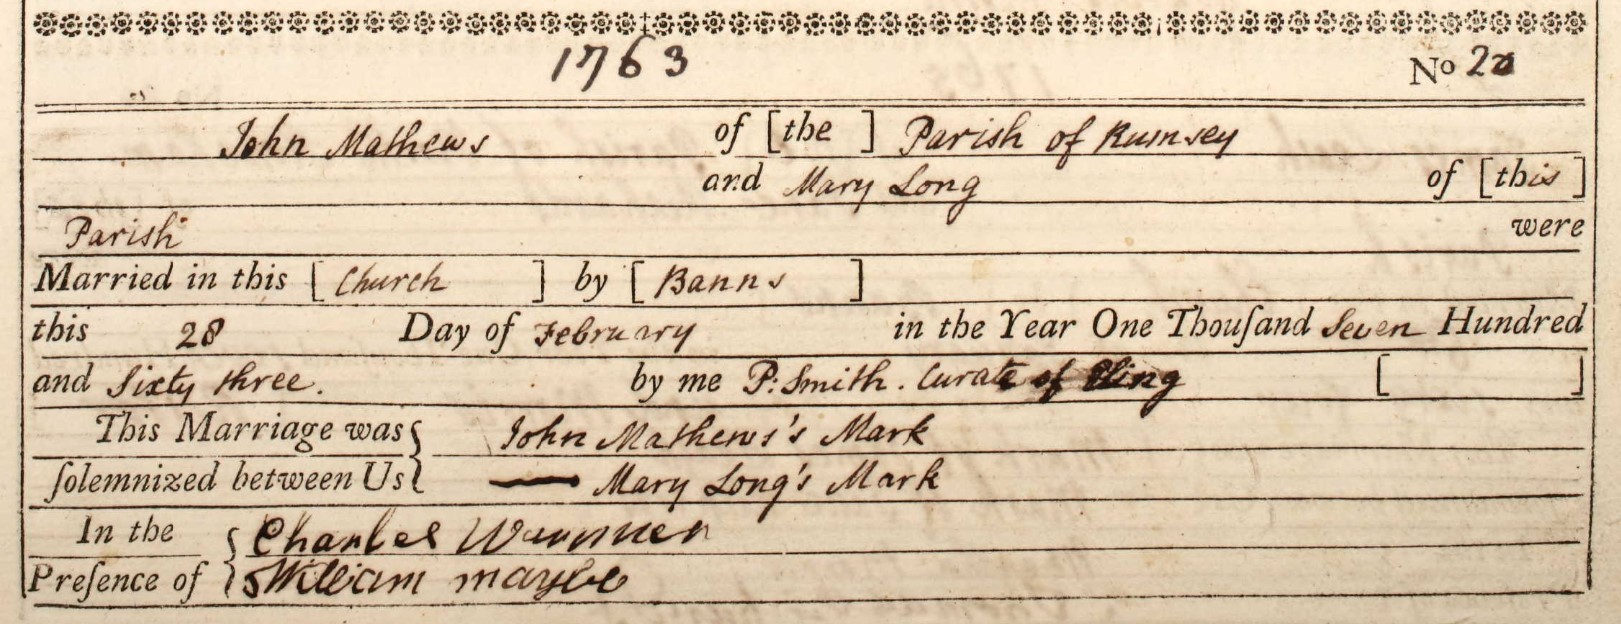 1763 No 20
John Mathews of [the ] Parish of Rumsey
and Mary Long of [this]
Parish were
Married in this [ Church ] by [ Banns ]
this 28 Day of February in the Year One Thouſand Seven Hundred
and Sixty three. by me P: Smith. Curate of Eling [ ]
This Marriage was { John Mathews's Mark
ſolemnized between Us { Mary Long's Mark
In the { Charles
Preſence of { William